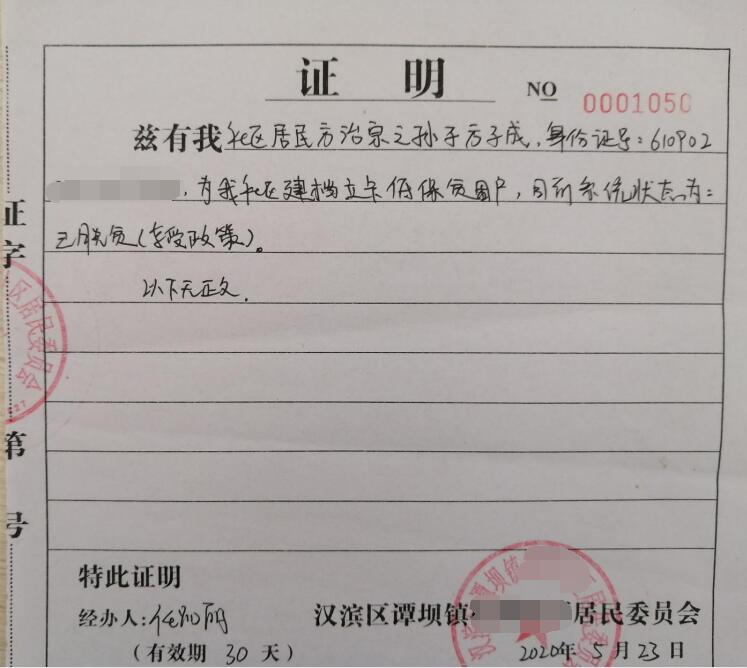 证 明
NO 0001050
兹有我社区居民方治宗之孙子方子成,身份证号:610902
,为我社区建档立卡低保贫困户,目前系统状态为:
已脱贫(享受政策)。
以下无正文.
证字
第
号
区居民委员会
特此证明
经办人:
汉滨区谭坝镇 居民委员会
(有效期 30 天)
2020年5月23日